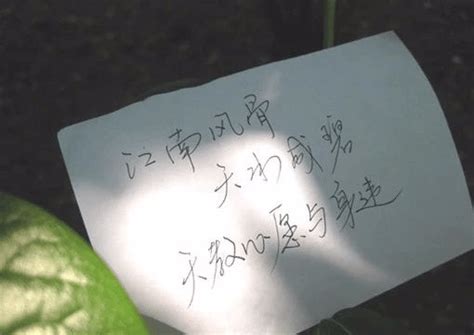 江南风骨
天水成碧
天教心愿与身违